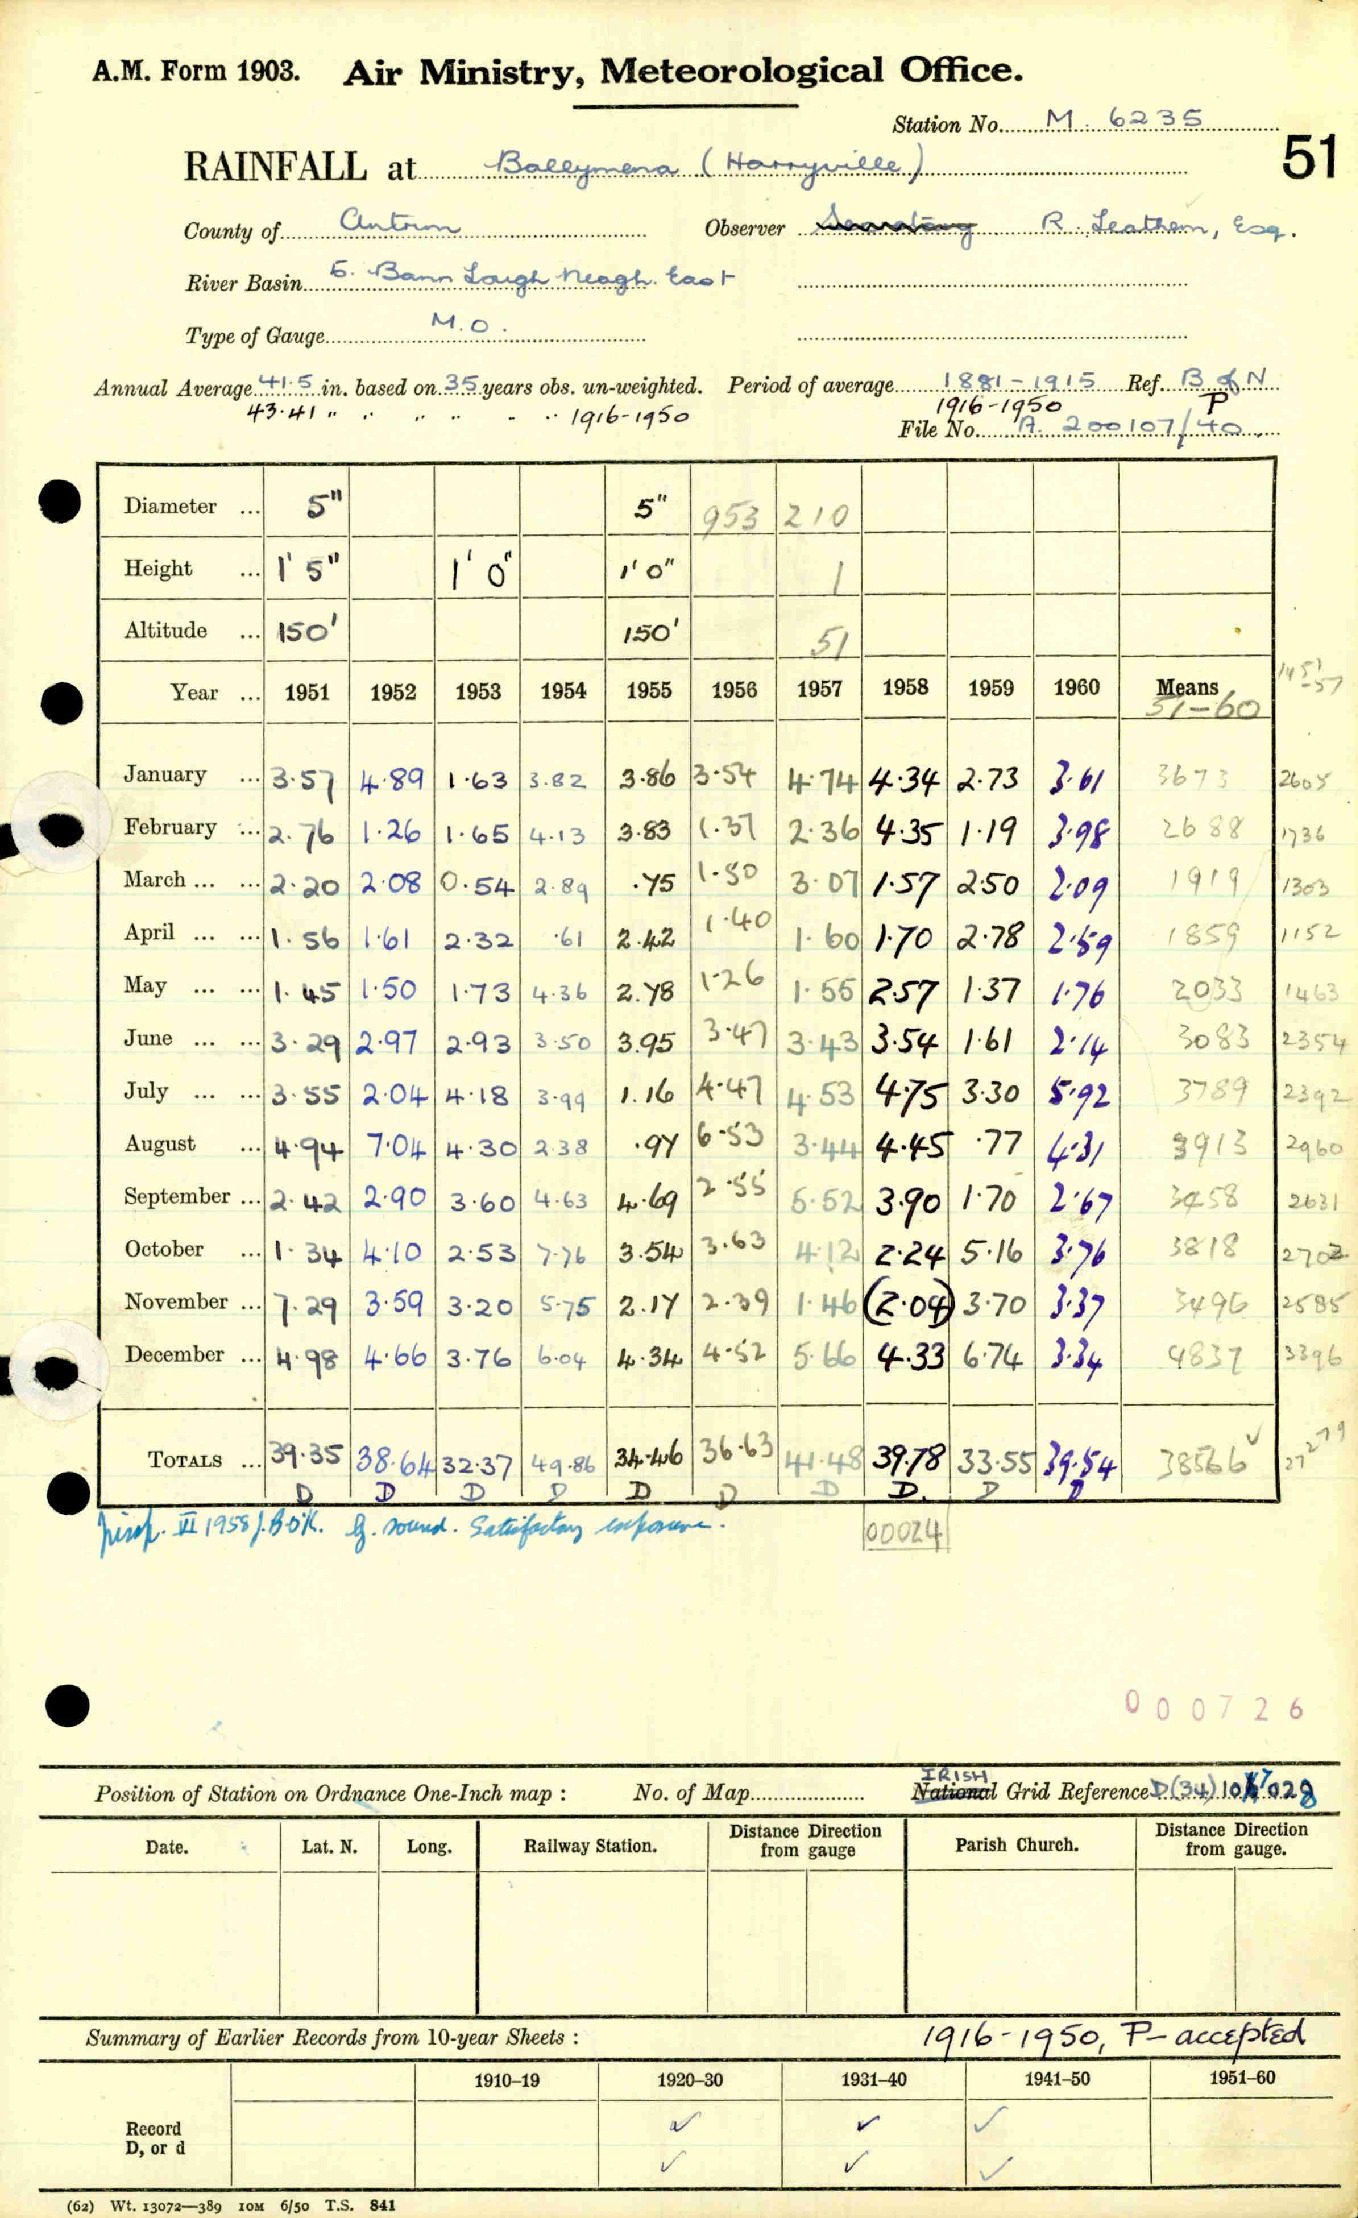 A.M. Form 1903. Air Ministry, Meteorological Office.
Station No. M. 6235
51
RAINFALL at Ballymena (Harryville)
County of Antrim Observer R. Leathem, Esq.
River Basin 5. Bann Lough Neagh. East
Type of Gauge M.O.
Annual Average 41.5 in. based on 35 years obs. un-weighted. Period of average 1881-1915 Ref. B of N
43.41 " " " " - " 1916-1950 1916-1950 P
File No. A. 200107/40
Diameter ... 5" 5" 953 210
Height ... 1' 5" 1' 0" 1' 0" 1
Altitude ... 150' 150' 51
Year ... 1951 1952 1953 1954 1955 1956 1957 1958 1959 1960 Means 51-60
January ... 3.57 4.89 1.63 3.82 3.86 3.54 4.74 4.34 2.73 3.61 3673 2605
February ... 2.76 1.26 1.65 4.13 3.83 1.37 2.36 4.35 1.19 3.98 2688 1736
March ... ... 2.20 2.08 0.54 2.89 .75 1.50 3.07 1.57 2.50 2.09 1919 1303
April ... ... 1.56 1.61 2.32 .61 2.42 1.40 1.60 1.70 2.78 2.59 1859 1152
May ... ... 1.45 1.50 1.73 4.36 2.78 1.26 1.55 2.57 1.37 1.76 2033 1463
June ... ... 3.29 2.97 2.93 3.50 3.95 3.47 3.43 3.54 1.61 2.14 3083 2354
July ... ... 3.55 2.04 4.18 3.99 1.16 4.47 4.53 4.75 3.30 5.92 3789 2392
August ... 4.94 7.04 4.30 2.38 .97 6.53 3.44 4.45 .77 4.31 3913 2960
September ... 2.42 2.90 3.60 4.63 4.69 2.55 5.52 3.90 1.70 2.67 3458 2631
October ... 1.34 4.10 2.53 7.76 3.54 3.63 4.12 2.24 5.16 3.76 3818 2702
November ... 7.29 3.59 3.20 5.75 2.17 2.39 1.46 (2.04) 3.70 3.37 3496 2585
December ... 4.98 4.66 3.76 6.04 4.34 4.52 5.66 4.33 6.74 3.34 4837 3396
TOTALS ... 39.35 38.64 32.37 49.86 34.46 36.63 41.48 39.78 33.55 39.54 38566 27279
D D D D D D D D. D D
Insp. VI 1958 J.BO'K. G. sound. Satisfactory exposure.
00024
000726
Position of Station on Ordnance One-Inch map : No. of Map IRISH National Grid Reference D(34) 107 028
Date. Lat. N. Long. Railway Station. Distance from gauge Direction Parish Church. Distance from gauge. Direction
Summary of Earlier Records from 10-year Sheets : 1916-1950, P- accepted
1910–19 1920–30 1931–40 1941–50 1951–60
Record ✓ ✓ ✓
D, or d ✓ ✓ ✓
(62) Wt. 13072—389 10M 6/50 T.S. 841